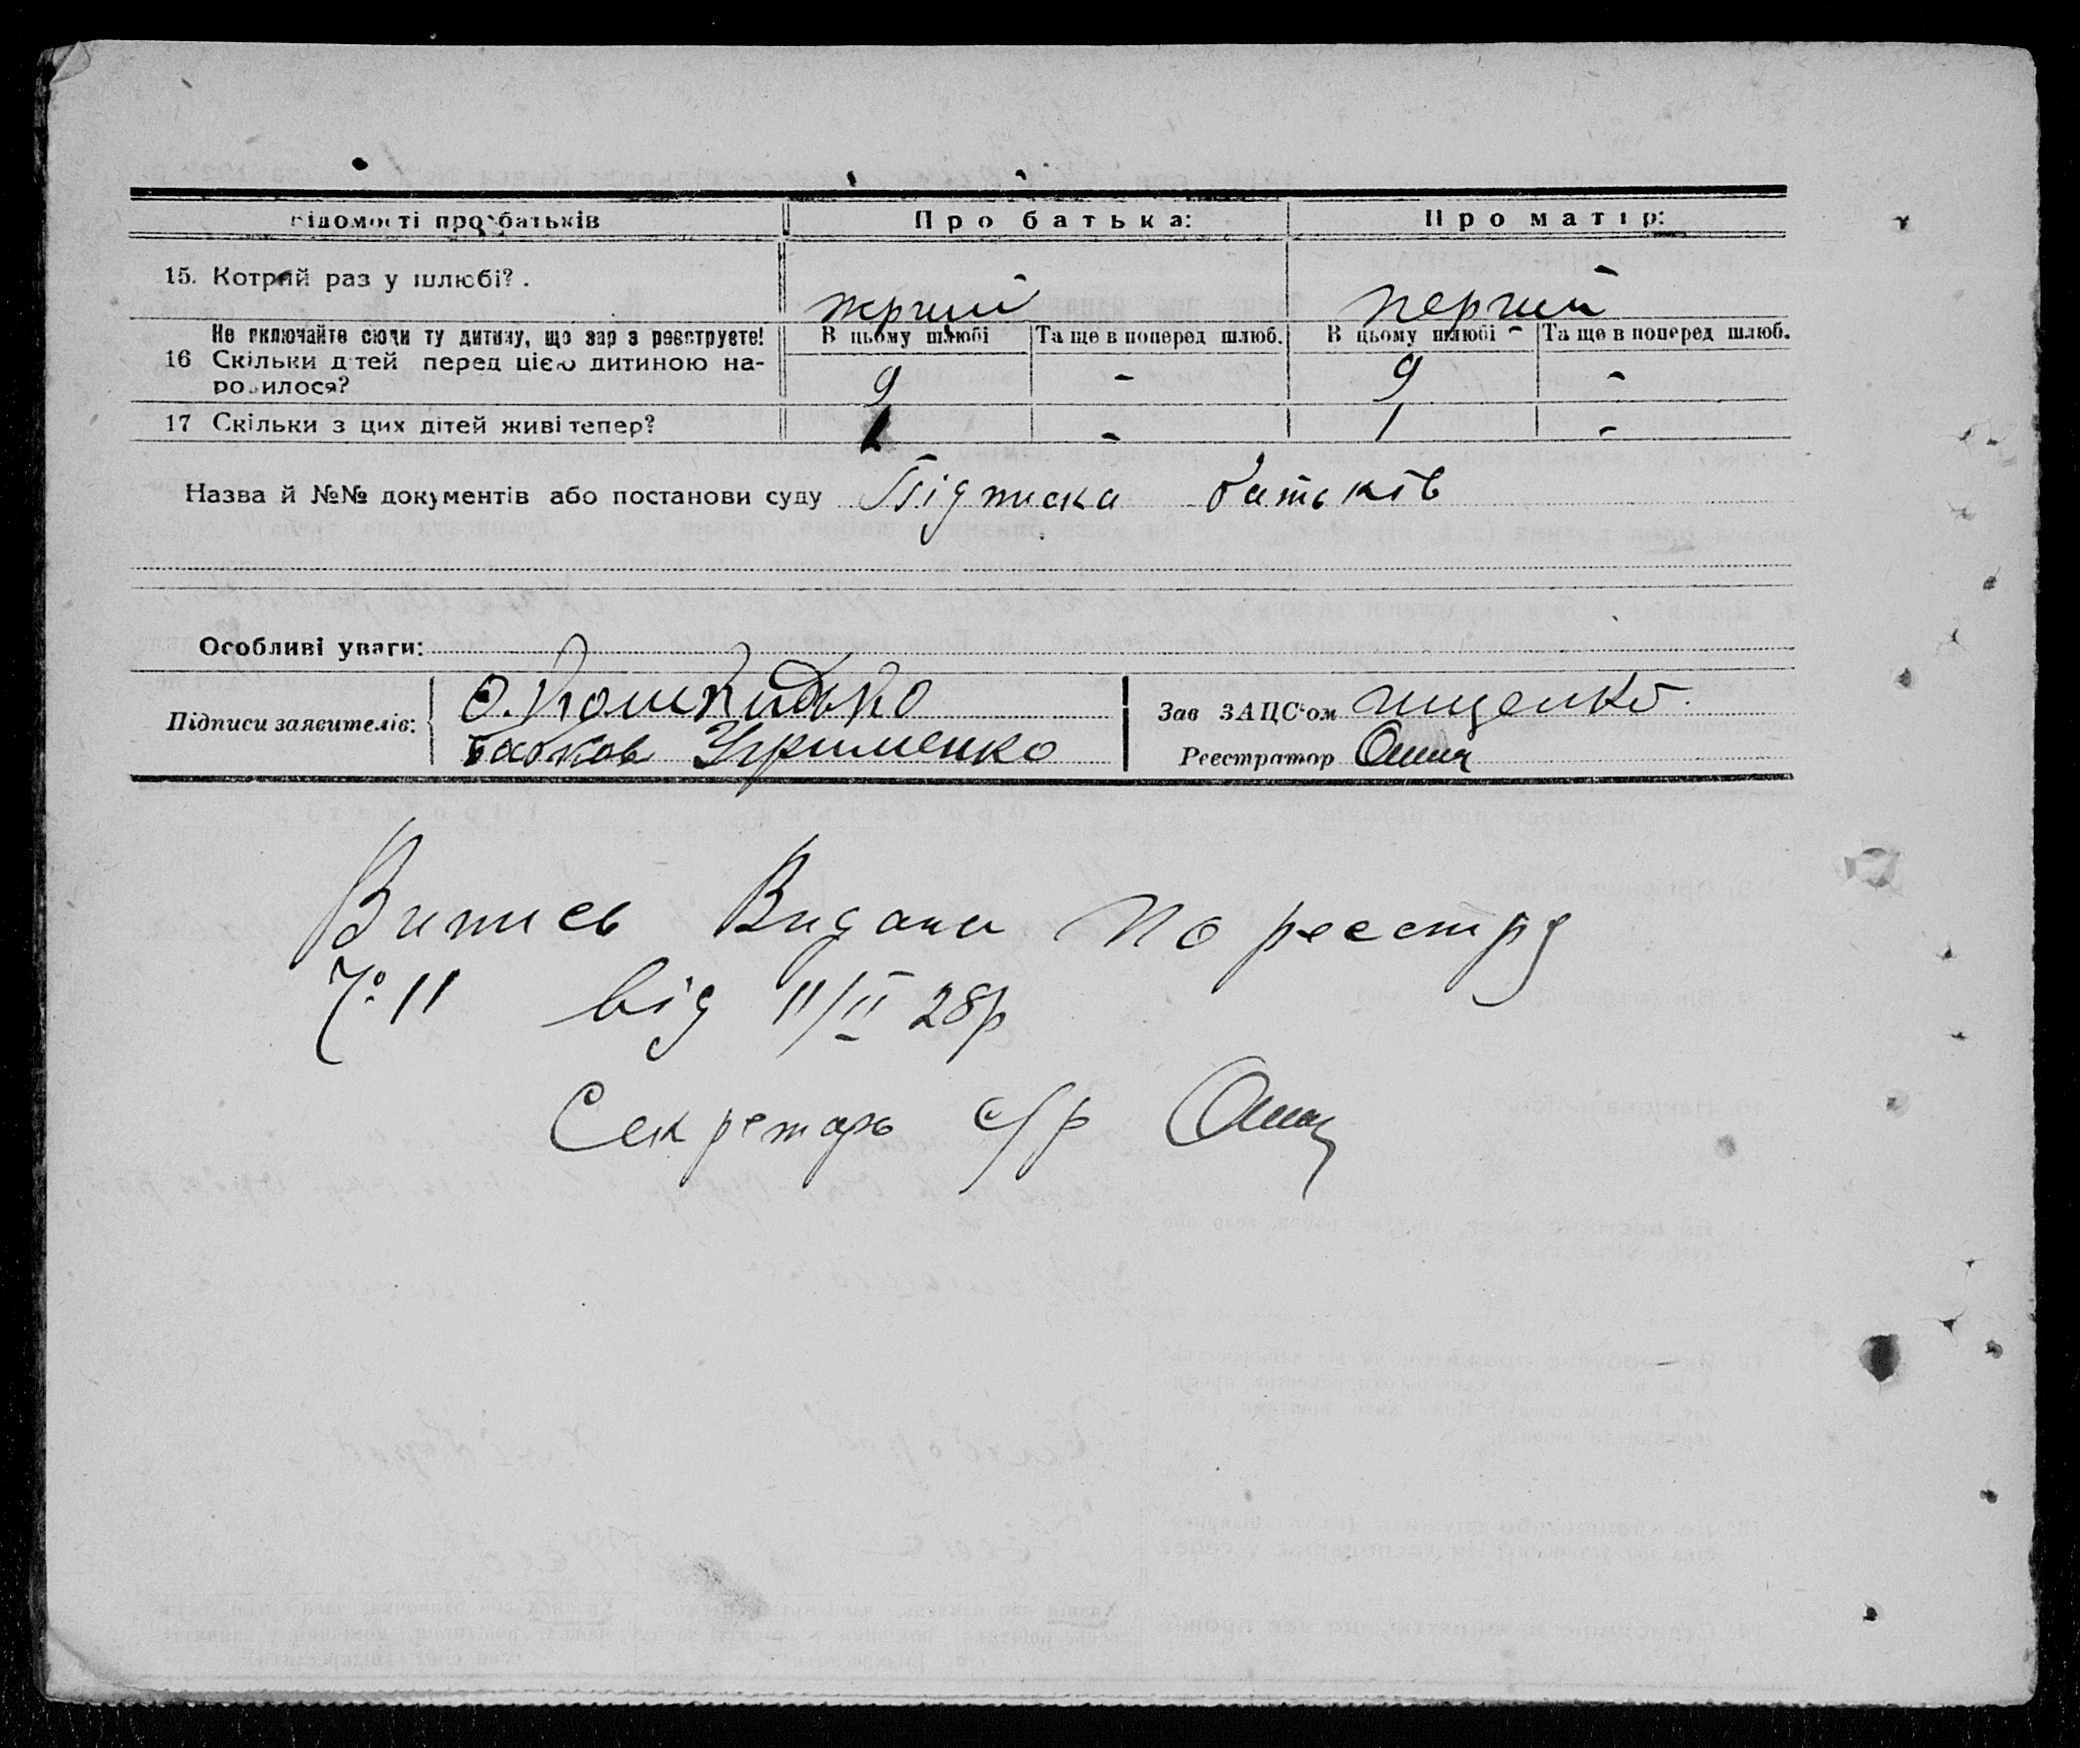 Відомості про батьків Про батька: Про матір:
15. Котрий раз у шлюбі? . перчий перчий
Не включайте сюди ту дитину, що зар з реєструєте! В цьому шлюбі Та ще в поперед шлюб. В цьому шлюбі Та ще в поперед шлюб.
16 Скільки дітей перед цією дитиною на-
родилося? 9 - 9 -
17 Скільки з цих дітей живі тепер? 1 - 1 -
Назва й №№ документів або постанови суду Підписка батьків
Особливі уваги:
Підписи заявителів: О. Кошкидько Зав ЗАЦС'ом
Реєстратор
Випись Видана по реєстру
№ 11 від 11/II 28р
Секретарь с/р